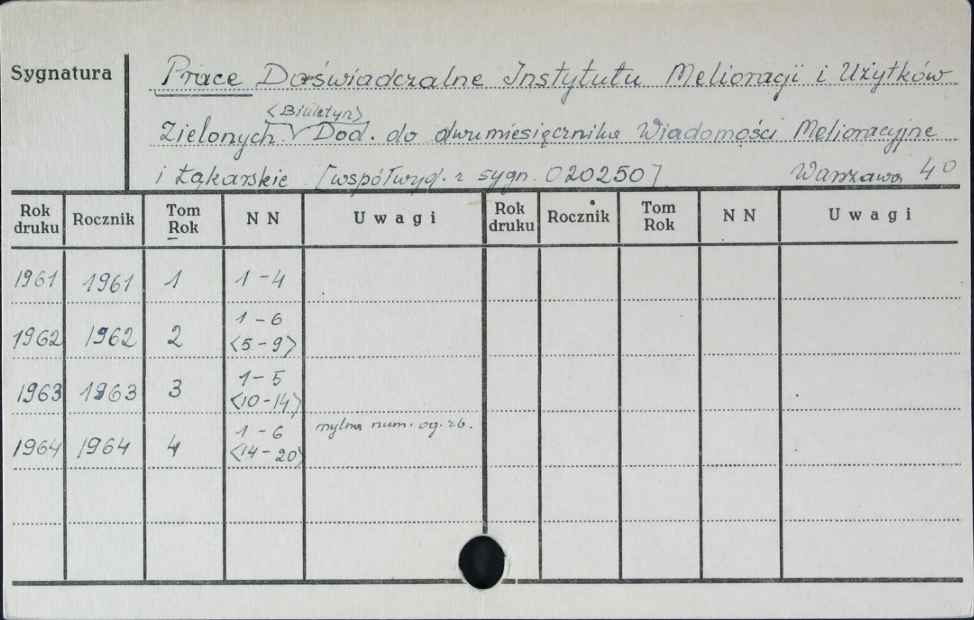 Sygnatura
Prace Doświadczalne Instytutu Melioracji i Użytków
<Biuletyn>
Zielonych. Dod. do dwumiesięcznika Wiadomości Melioracyjne
i Łąkarskie [współwyd. z sygn. 020250] Warszawa 4°
Rok druku Rocznik Tom Rok NN Uwagi Rok druku Rocznik Tom Rok NN Uwagi
1961 1961 1 1-4
1962 1962 2 1-6 <5-9>
1963 1963 3 1-5 <10-14>
1964 1964 4 1-6 <14-20> mylna num. og. zb.